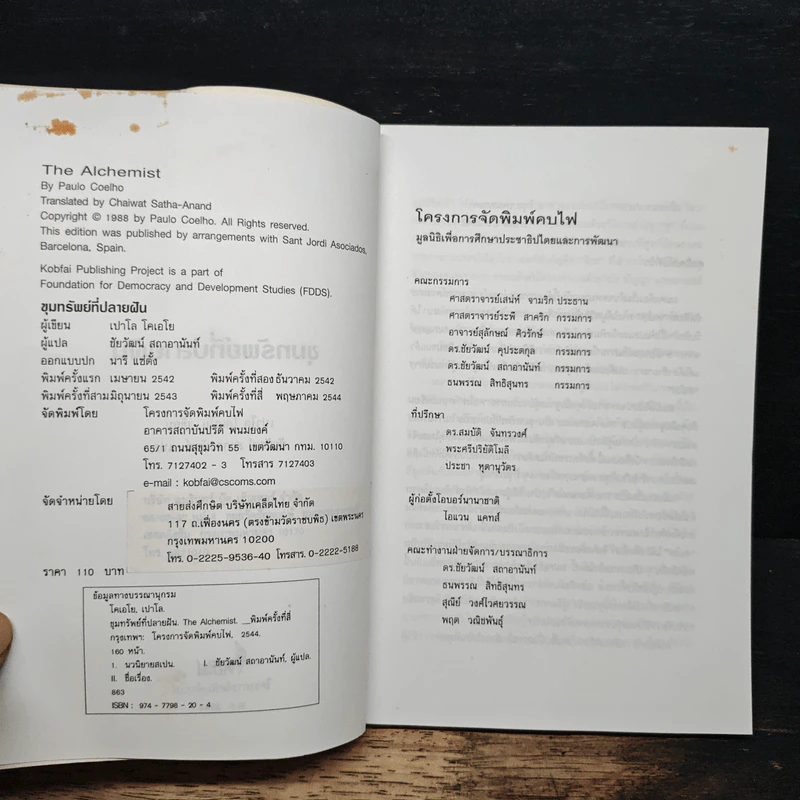 The Alchemist
By Paulo Coelho
Translated by Chaiwat Satha-Anand
Copyright © 1988 by Paulo Coelho. All Rights reserved.
This edition was published by arrangements with Sant Jordi Asociados,
Barcelona, Spain.
Kobfai Publishing Project is a part of
Foundation for Democracy and Development Studies (FDDS).
ขุมทรัพย์ที่ปลายฝัน
ผู้เขียน เปาโล โคเอโย
ผู้แปล ชัยวัฒน์ สถาอานันท์
ออกแบบปก นารี แซ่ตั้ง
พิมพ์ครั้งแรก เมษายน 2542 พิมพ์ครั้งที่สอง ธันวาคม 2542
พิมพ์ครั้งที่สาม มิถุนายน 2543 พิมพ์ครั้งที่สี่ พฤษภาคม 2544
จัดพิมพ์โดย โครงการจัดพิมพ์คบไฟ
อาคารสถาบันปรีดี พนมยงค์
65/1 ถนนสุขุมวิท 55 เขตวัฒนา กทม. 10110
โทร. 7127402 - 3 โทรสาร 7127403
e-mail : kobfai@cscoms.com
จัดจำหน่ายโดย สายส่งศึกษิต บริษัทเคล็ดไทย จำกัด
117 ถ.เฟื่องนคร (ตรงข้ามวัดราชบพิธ) เขตพระนคร
กรุงเทพมหานคร 10200
โทร. 0-2225-9536-40 โทรสาร. 0-2222-5188
ราคา 110 บาท
ข้อมูลทางบรรณานุกรม
โคเอโย, เปาโล.
ขุมทรัพย์ที่ปลายฝัน. The Alchemist. __พิมพ์ครั้งที่สี่
กรุงเทพฯ: โครงการจัดพิมพ์คบไฟ, 2544.
160 หน้า.
1. นวนิยายสเปน. I. ชัยวัฒน์ สถาอานันท์, ผู้แปล.
II. ชื่อเรื่อง.
863
ISBN : 974 - 7798 - 20 - 4
โครงการจัดพิมพ์คบไฟ
มูลนิธิเพื่อการศึกษาประชาธิปไตยและการพัฒนา
คณะกรรมการ
ศาสตราจารย์เสน่ห์ จามริก ประธาน
ศาสตราจารย์ระพี สาคริก กรรมการ
อาจารย์สุลักษณ์ ศิวรักษ์ กรรมการ
ดร.ชัยวัฒน์ คุประตกุล กรรมการ
ดร.ชัยวัฒน์ สถาอานันท์ กรรมการ
ธนพรรณ สิทธิสุนทร กรรมการ
ที่ปรึกษา
ดร.สมบัติ จันทรวงศ์
พระศรีปริยัติโมลี
ประชา หุตานุวัตร
ผู้ก่อตั้งโอบอร์นานาชาติ
ไอแวน แคทส์
คณะทำงานฝ่ายจัดการ/บรรณาธิการ
ดร.ชัยวัฒน์ สถาอานันท์
ธนพรรณ สิทธิสุนทร
สุณีย์ วงศ์ไวศยวรรณ
พฤต วณิชพันธุ์